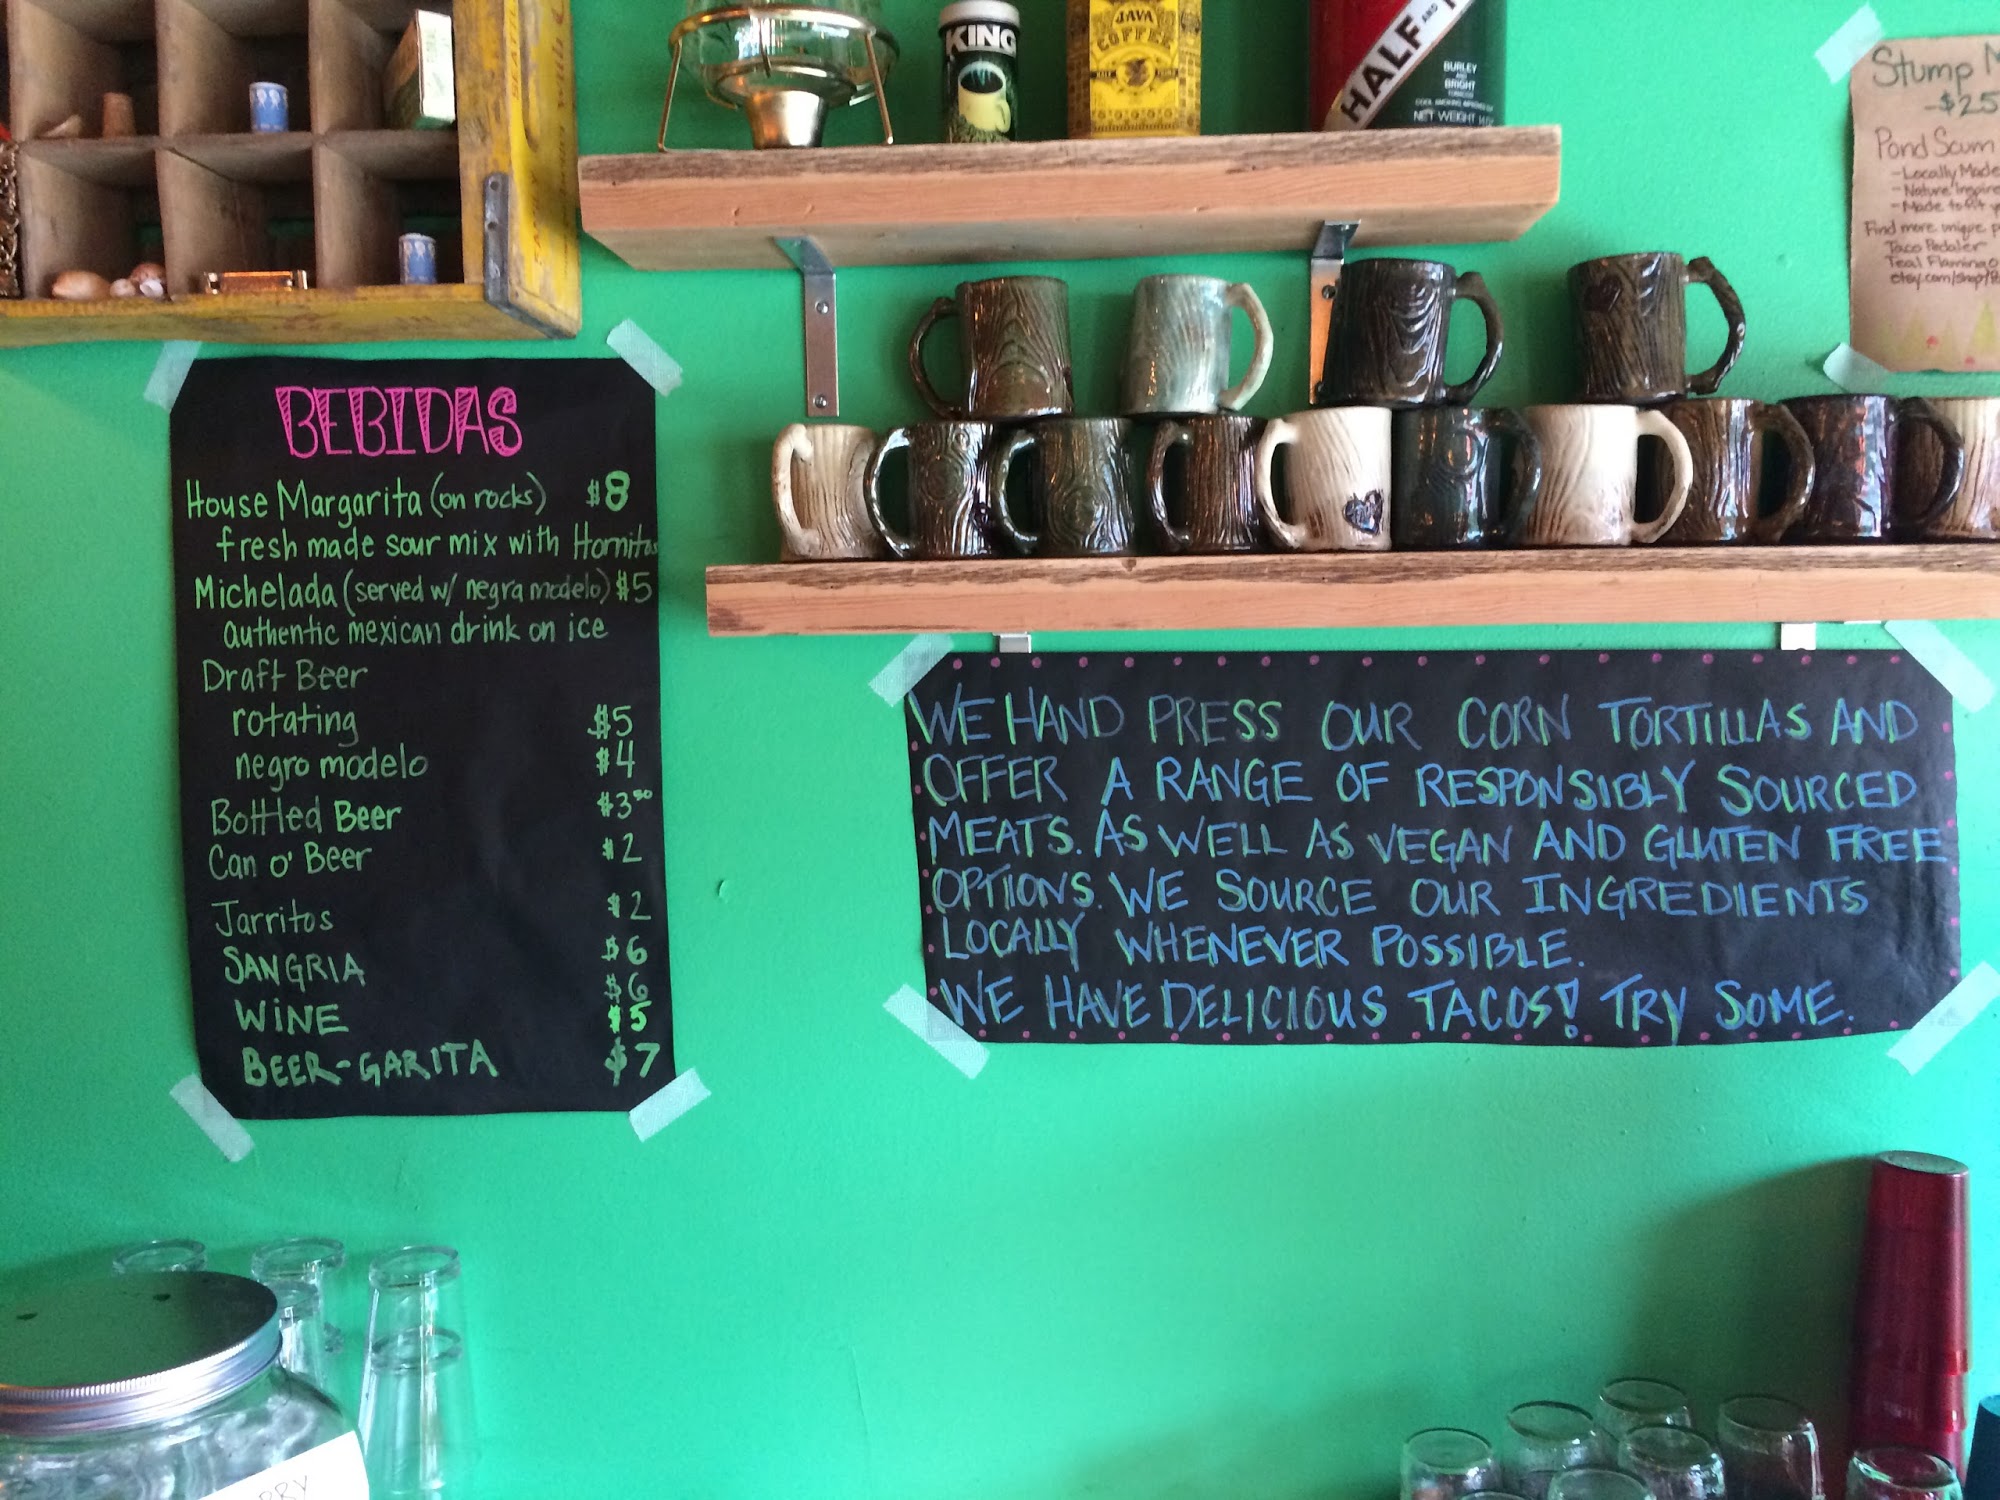 BEBIDAS
House Margarita (on rocks) $8
fresh made sour mix with Hornitos
Michelada (served w/ negra modelo) $5
authentic mexican drink on ice
Draft Beer
rotating $5
negro modelo $4
Bottled Beer $3⁵⁰
Can o' Beer $2
Jarritos $2
SANGRIA $6
$6
WINE $5
BEER-GARITA $7
KING
JAVA
COFFEE
HALF AND
BURLEY
AND
BRIGHT
TOBACCO
NET WEIGHT 14 OZ
Stump M
-$25
Pond Scum
-Locally Made
-Nature Inspire
-Made to fit y
Find more unique p
Taco Pedaler
Teal Flamingo
etsy.com/shop/
WE HAND PRESS OUR CORN TORTILLAS AND
OFFER A RANGE OF RESPONSIBLY SOURCED
MEATS. AS WELL AS VEGAN AND GLUTEN FREE
OPTIONS. WE SOURCE OUR INGREDIENTS
LOCALLY WHENEVER POSSIBLE.
WE HAVE DELICIOUS TACOS! TRY SOME.
RRY